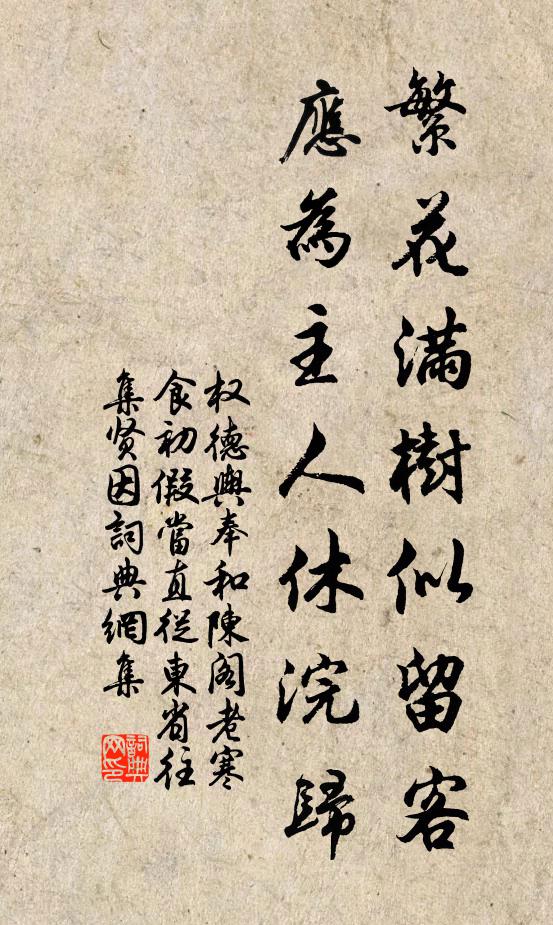 繁花滿樹似留客
應為主人休浣歸
权德輿奉和陳阁老寒
食初假當直從東省往
集贤因詞典網集
詞典
网印